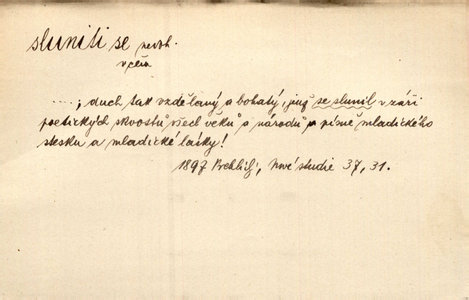 sluniti se nedok.
v čem
....; duch tak vzdělaný a bohatý, jenž se slunil v záři
poetických skvostů všech věků a národů, píše mladického
stesku a mladické lásky!
1897 Vrchlický, Nové studie 37, 31.